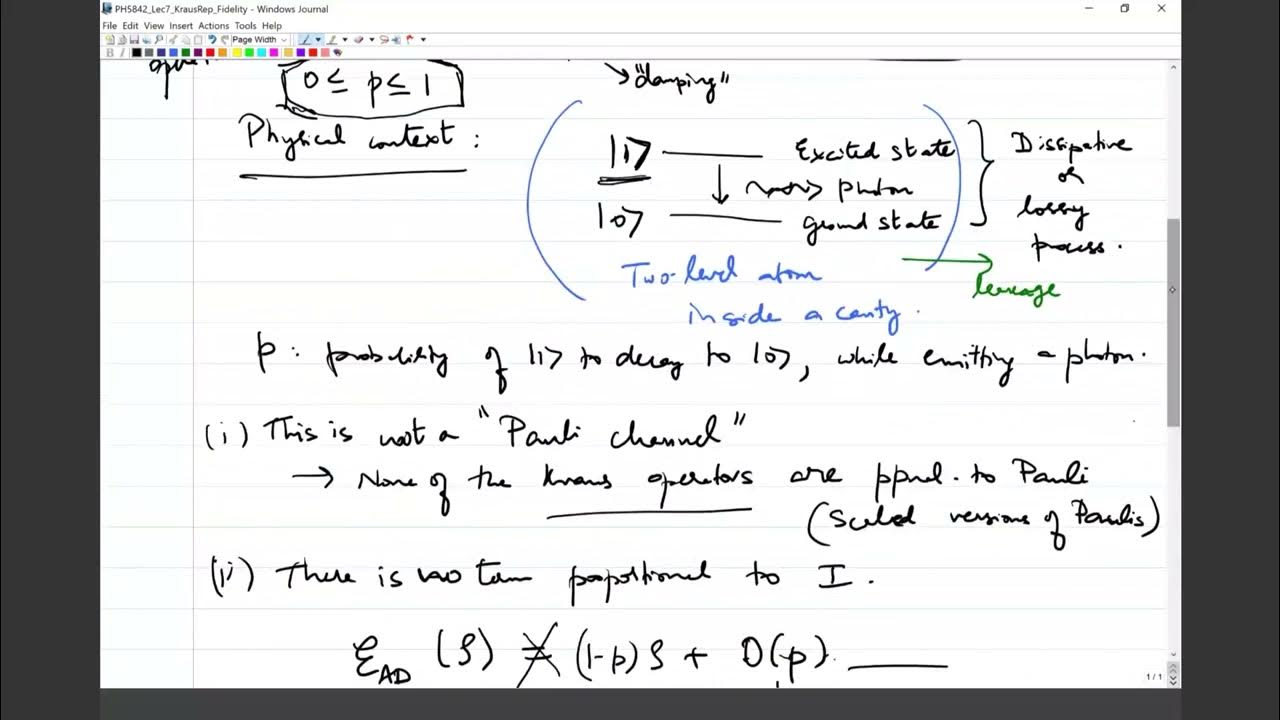 PH5842_Lec7_KrausRep_Fidelity - Windows Journal
File Edit View Insert Actions Tools Help
Page Width
0 ≤ p ≤ 1
"damping"
Physical context :
|1> Excited state
photon
|0> ground state
Dissipative
or
lossy
process.
Two-level atom
inside a cavity.
leakage
p : probability of |1> to decay to |0>, while emitting a photon.
(i) This is not a "Pauli channel"
→ None of the Kraus operators are ppnl. to Pauli
(Scaled versions of Paulis)
(ii) There is no term proportional to I.
ℰ_AD (ρ) ≠ (1-p) ρ + O(p)
1 / 1